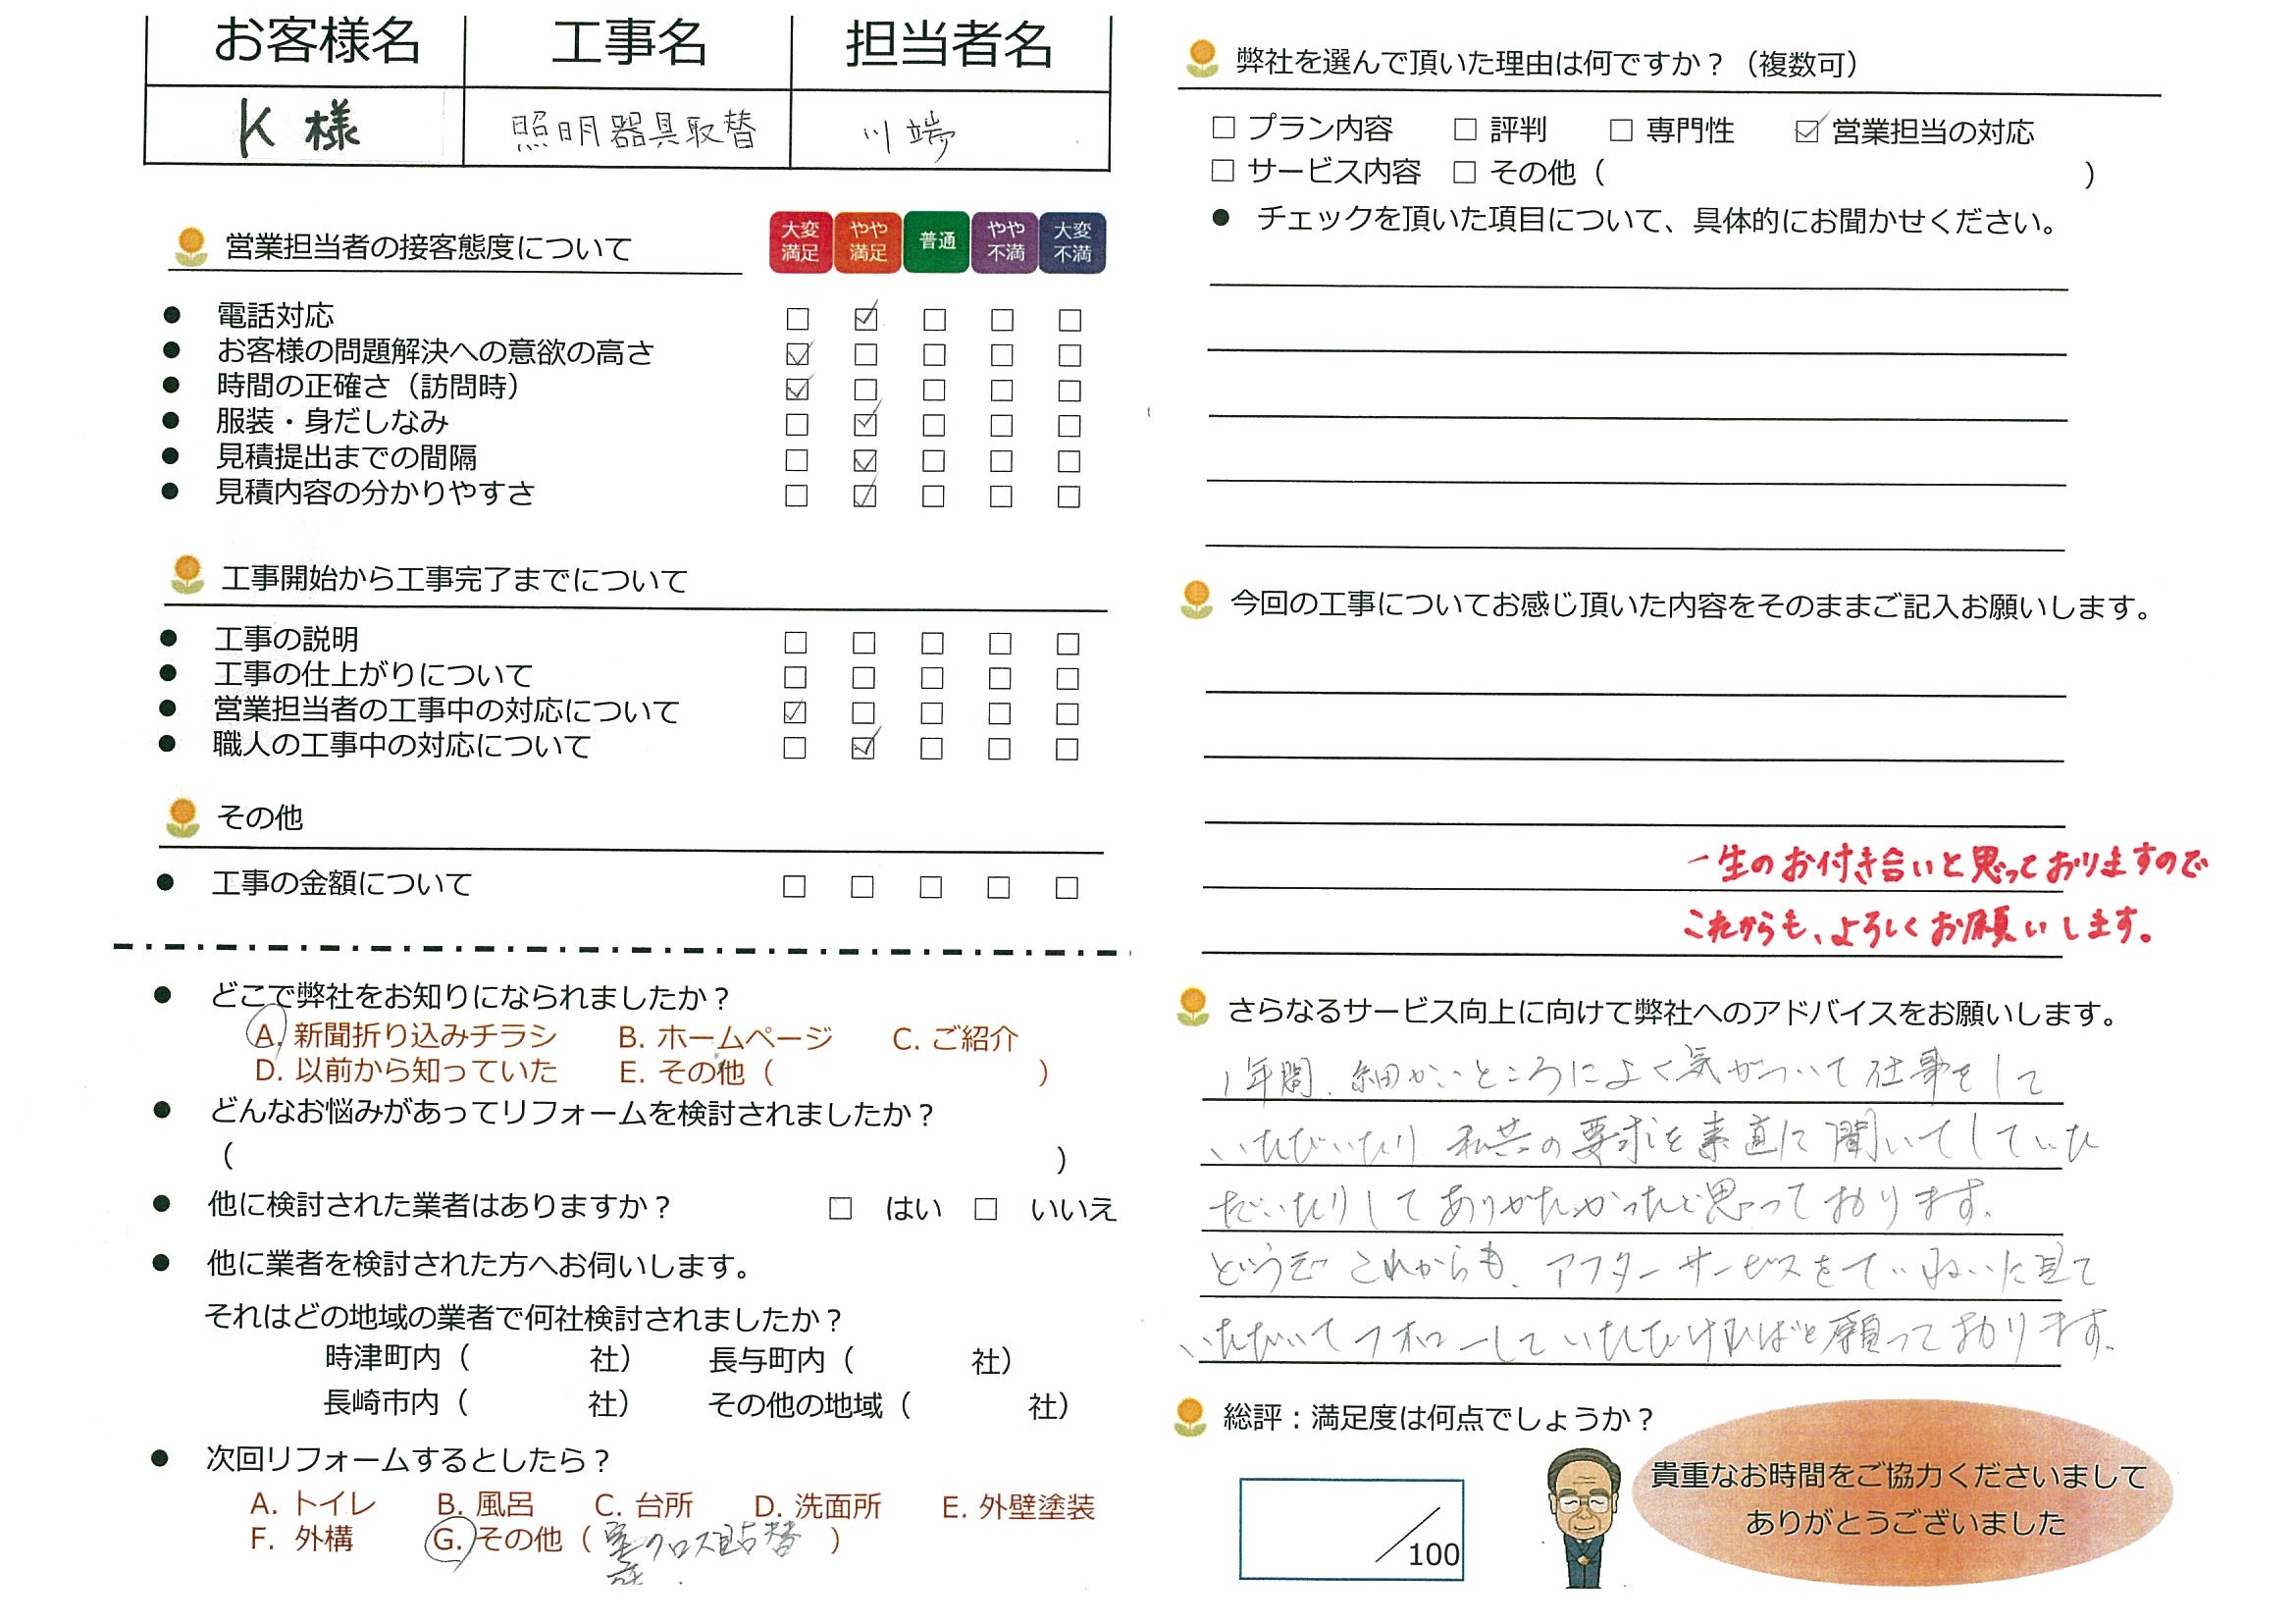 お客様名 工事名 担当者名
K 様 照明器具取替 川端
営業担当者の接客態度について
大変満足 やや満足 普通 やや不満 大変不満
● 電話対応 □ ☑ □ □ □
● お客様の問題解決への意欲の高さ ☑ □ □ □ □
● 時間の正確さ（訪問時） ☑ □ □ □ □
● 服装・身だしなみ □ ☑ □ □ □
● 見積提出までの間隔 □ ☑ □ □ □
● 見積内容の分かりやすさ □ ☑ □ □ □
工事開始から工事完了までについて
● 工事の説明 □ □ □ □ □
● 工事の仕上がりについて □ □ □ □ □
● 営業担当者の工事中の対応について ☑ □ □ □ □
● 職人の工事中の対応について □ ☑ □ □ □
その他
● 工事の金額について □ □ □ □ □
● どこで弊社をお知りになられましたか？
A. 新聞折り込みチラシ B. ホームページ C. ご紹介
D. 以前から知っていた E. その他（ ）
● どんなお悩みがあってリフォームを検討されましたか？
（ ）
● 他に検討された業者はありますか？ □ はい □ いいえ
● 他に業者を検討された方へお伺いします。
それはどの地域の業者で何社検討されましたか？
時津町内（ 社） 長与町内（ 社）
長崎市内（ 社） その他の地域（ 社）
● 次回リフォームするとしたら？
A. トイレ B. 風呂 C. 台所 D. 洗面所 E. 外壁塗装
F. 外構 G. その他（ クロス貼替 ）
弊社を選んで頂いた理由は何ですか？（複数可）
□ プラン内容 □ 評判 □ 専門性 ☑ 営業担当の対応
□ サービス内容 □ その他（ ）
● チェックを頂いた項目について、具体的にお聞かせください。
今回の工事についてお感じ頂いた内容をそのままご記入お願いします。
一生のお付き合いと思っておりますので
これからも、よろしくお願いします。
さらなるサービス向上に向けて弊社へのアドバイスをお願いします。
1年間、細かいところによく気がついて仕事をして
いただいたり 私共の要求を素直に聞いてしていた
だいたりしてありがたかったと思っております。
どうぞ これからも、アフターサービスをていねいに見て
いただいてフォローしていただければと願っております。
総評：満足度は何点でしょうか？
／100
貴重なお時間をご協力くださいまして
ありがとうございました